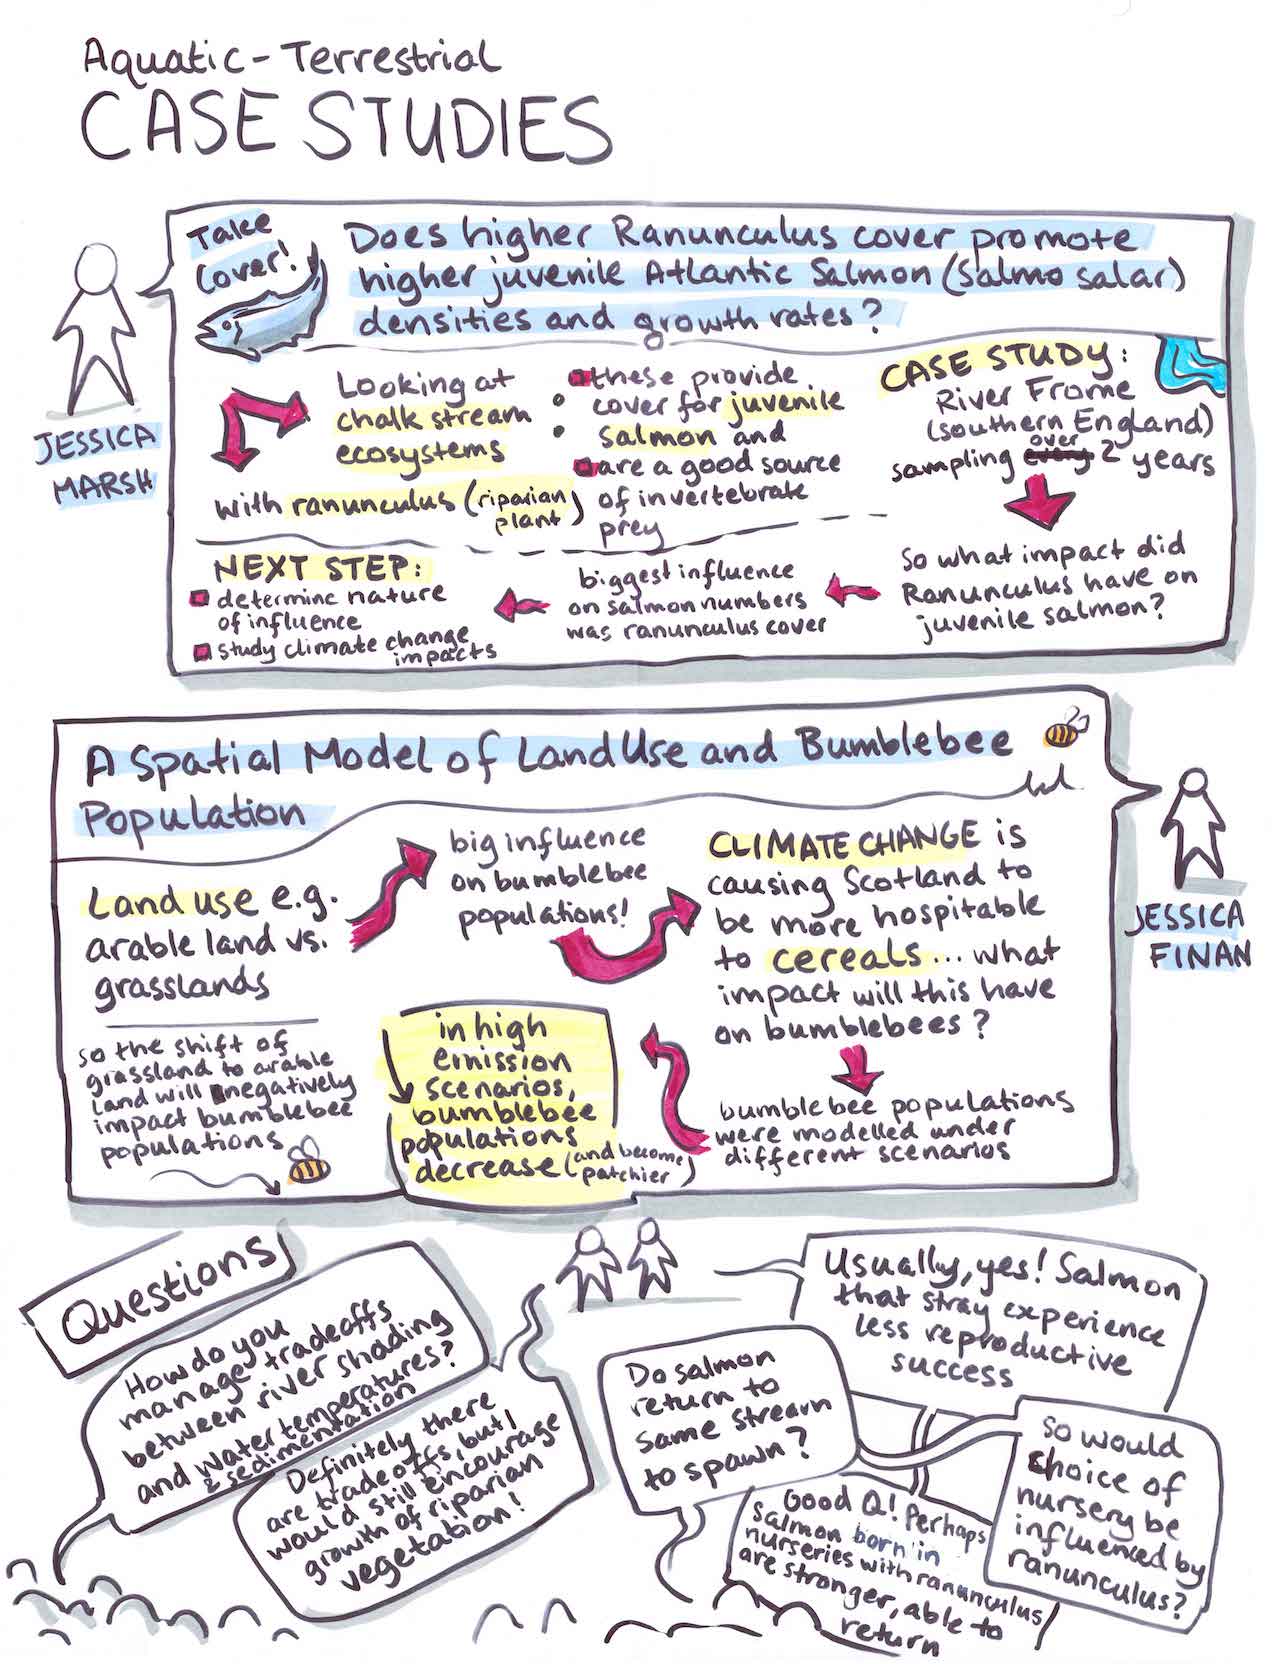 Aquatic-Terrestrial
CASE STUDIES
Take
Cover!
Does higher Ranunculus cover promote
higher juvenile Atlantic Salmon (Salmo salar)
densities and growth rates?
JESSICA
MARSH
Looking at
chalk stream
ecosystems
with ranunculus (riparian
plant)
these provide
cover for juvenile
salmon and
are a good source
of invertebrate
prey
CASE STUDY:
River Frome
(southern England)
sampling over 2 years
So what impact did
Ranunculus have on
juvenile salmon?
biggest influence
on salmon numbers
was ranunculus cover
NEXT STEP:
determine nature
of influence
study climate change
impacts
A Spatial Model of Land Use and Bumblebee
Population
JESSICA
FINAN
Land use e.g.
arable land vs.
grasslands
big influence
on bumblebee
populations!
CLIMATE CHANGE is
causing Scotland to
be more hospitable
to cereals... what
impact will this have
on bumblebees?
bumblebee populations
were modelled under
different scenarios
in high
emission
scenarios,
bumblebee
populations
decrease (and become
patchier)
so the shift of
grassland to arable
land will negatively
impact bumblebee
populations
Questions
How do you
manage tradeoffs
between river shading
and water temperatures?
& sedimentation
Definitely there
are tradeoffs, but I
would still encourage
growth of riparian
vegetation!
Do salmon
return to
same stream
to spawn?
Usually, yes! Salmon
that stray experience
less reproductive
success
So would
choice of
nursery be
influenced by
ranunculus?
Good Q! Perhaps
salmon born in
nurseries with ranunculus
are stronger, able to
return